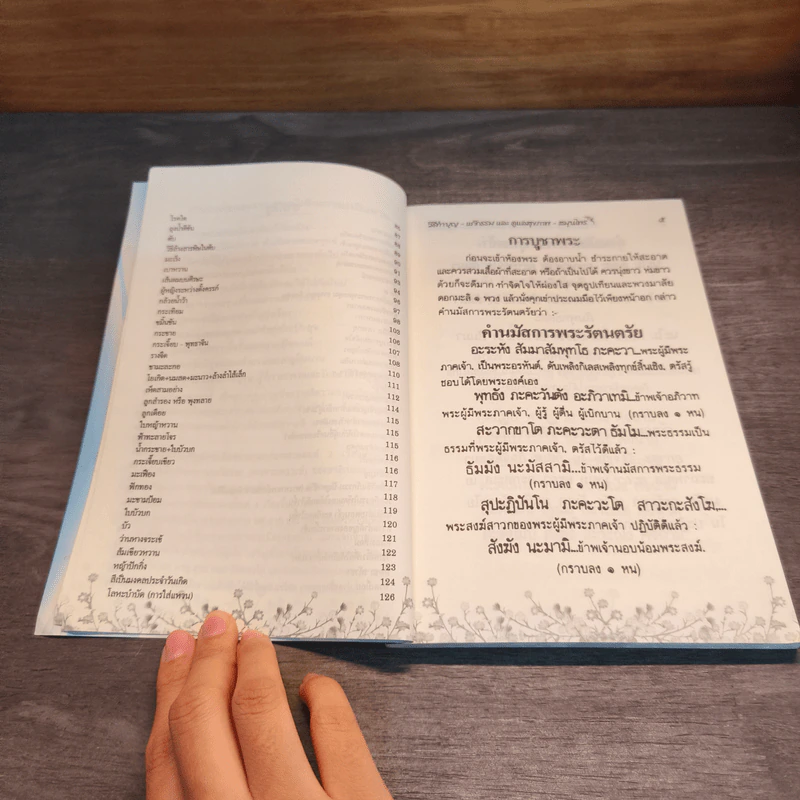 โรคไต
ลูกใต้ใบ
ตับ
มะเร็ง 91
เบาหวาน 94
ผู้หญิงระหว่างตั้งครรภ์ 95
กล้วยน้ำว้า 96
กระเทียม 97
ขมิ้นชัน 98
กระชาย 103
กระเจี๊ยบ - พุทราจีน 105
รางจืด 106
ชามะละกอ 107
โยเกิต+นมสด+มะนาว+ล้างลำไส้เล็ก 110
เห็ดสามอย่าง 111
ลูกสำรอง หรือ พุงทลาย 112
ลูกเดือย 114
ใบหญ้าหวาน 115
ฟ้าทะลายโจร 115
น้ำกระชาย+ใบบัวบก 115
กระเจี๊ยบเขียว 116
มะเฟือง 116
ฟักทอง 117
มะขามป้อม 118
ใบบัวบก 119
บัว 120
ว่านหางจระเข้ 121
ส้มเขียวหวาน 122
หญ้าปักกิ่ง 123
สีเป็นมงคลประจำวันเกิด 124
โลหะบำบัด (การใส่แหวน) 126
วิธีทำบุญ - แก้กรรม และ ดูแลสุขภาพ - สมุนไพร ๕
การบูชาพระ
ก่อนจะเข้าห้องพระ ต้องอาบน้ำ ชำระกายให้สะอาด
และควรสวมเสื้อผ้าที่สะอาด หรือถ้าเป็นไปได้ ควรนุ่งขาว ห่มขาว
ด้วยก็จะดีมาก ทำจิตใจให้ผ่องใส จุดธูปเทียนและพวงมาลัย
ดอกมะลิ ๑ พวง แล้วนั่งคุกเข่าประณมมือไว้เพียงหน้าอก กล่าว
คำนมัสการพระรัตนตรัยว่า :-
คำนมัสการพระรัตนตรัย
อะระหัง สัมมาสัมพุทโธ ภะคะวา...พระผู้มีพระ
ภาคเจ้า, เป็นพระอรหันต์, ดับเพลิงกิเลสเพลิงทุกข์สิ้นเชิง, ตรัสรู้
ชอบได้โดยพระองค์เอง
พุทธัง ภะคะวันตัง อะภิวาเทมิ...ข้าพเจ้าอภิวาท
พระผู้มีพระภาคเจ้า, ผู้รู้ ผู้ตื่น ผู้เบิกบาน (กราบลง ๑ หน)
สะวากขาโต ภะคะวะตา ธัมโม...พระธรรมเป็น
ธรรมที่พระผู้มีพระภาคเจ้า, ตรัสไว้ดีแล้ว :
ธัมมัง นะมัสสามิ...ข้าพเจ้านมัสการพระธรรม
(กราบลง ๑ หน)
สุปะฏิปันโน ภะคะวะโต สาวะกะสังโฆ....
พระสงฆ์สาวกของพระผู้มีพระภาคเจ้า ปฏิบัติดีแล้ว :
สังฆัง นะมามิ...ข้าพเจ้านอบน้อมพระสงฆ์.
(กราบลง ๑ หน)